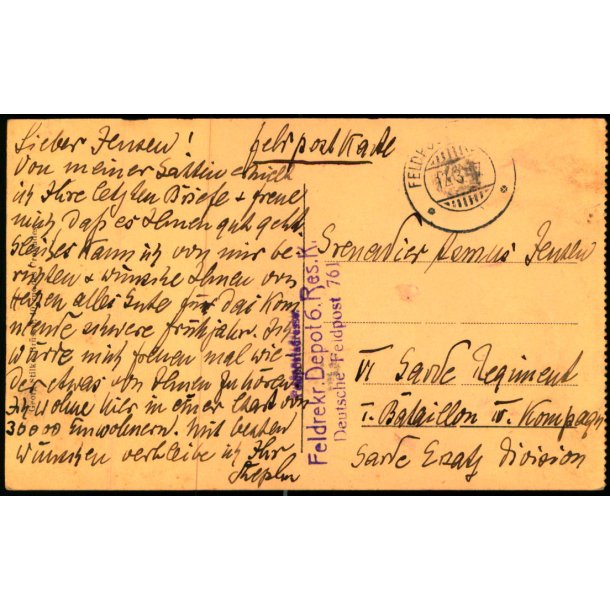 Lieber Jensen!
Von meiner Gattin erhielt
ich Ihre letzten Briefe + freue
mich daß es Ihnen gut geht
Gleiches kann ich von mir be-
richten + wünsche Ihnen von
Herzen alles Gute für das kom
mende schwere Frühjahr. Ich
würde mich freuen mal wie
der etwas von Ihnen zu hören
Ich wohne hier in einer Stadt von
30000 Einwohnern. Mit besten
Wünschen verbleibe ich Ihr
Feldpostkarte
FELDPO
Feldrekr. Depot 6. Res. K.
Deutsche Feldpost 761
Grenadier Asmus Jensen
VI Garde Regiment
I. Bataillon IV. Kompagn
Garde Ersatz Division